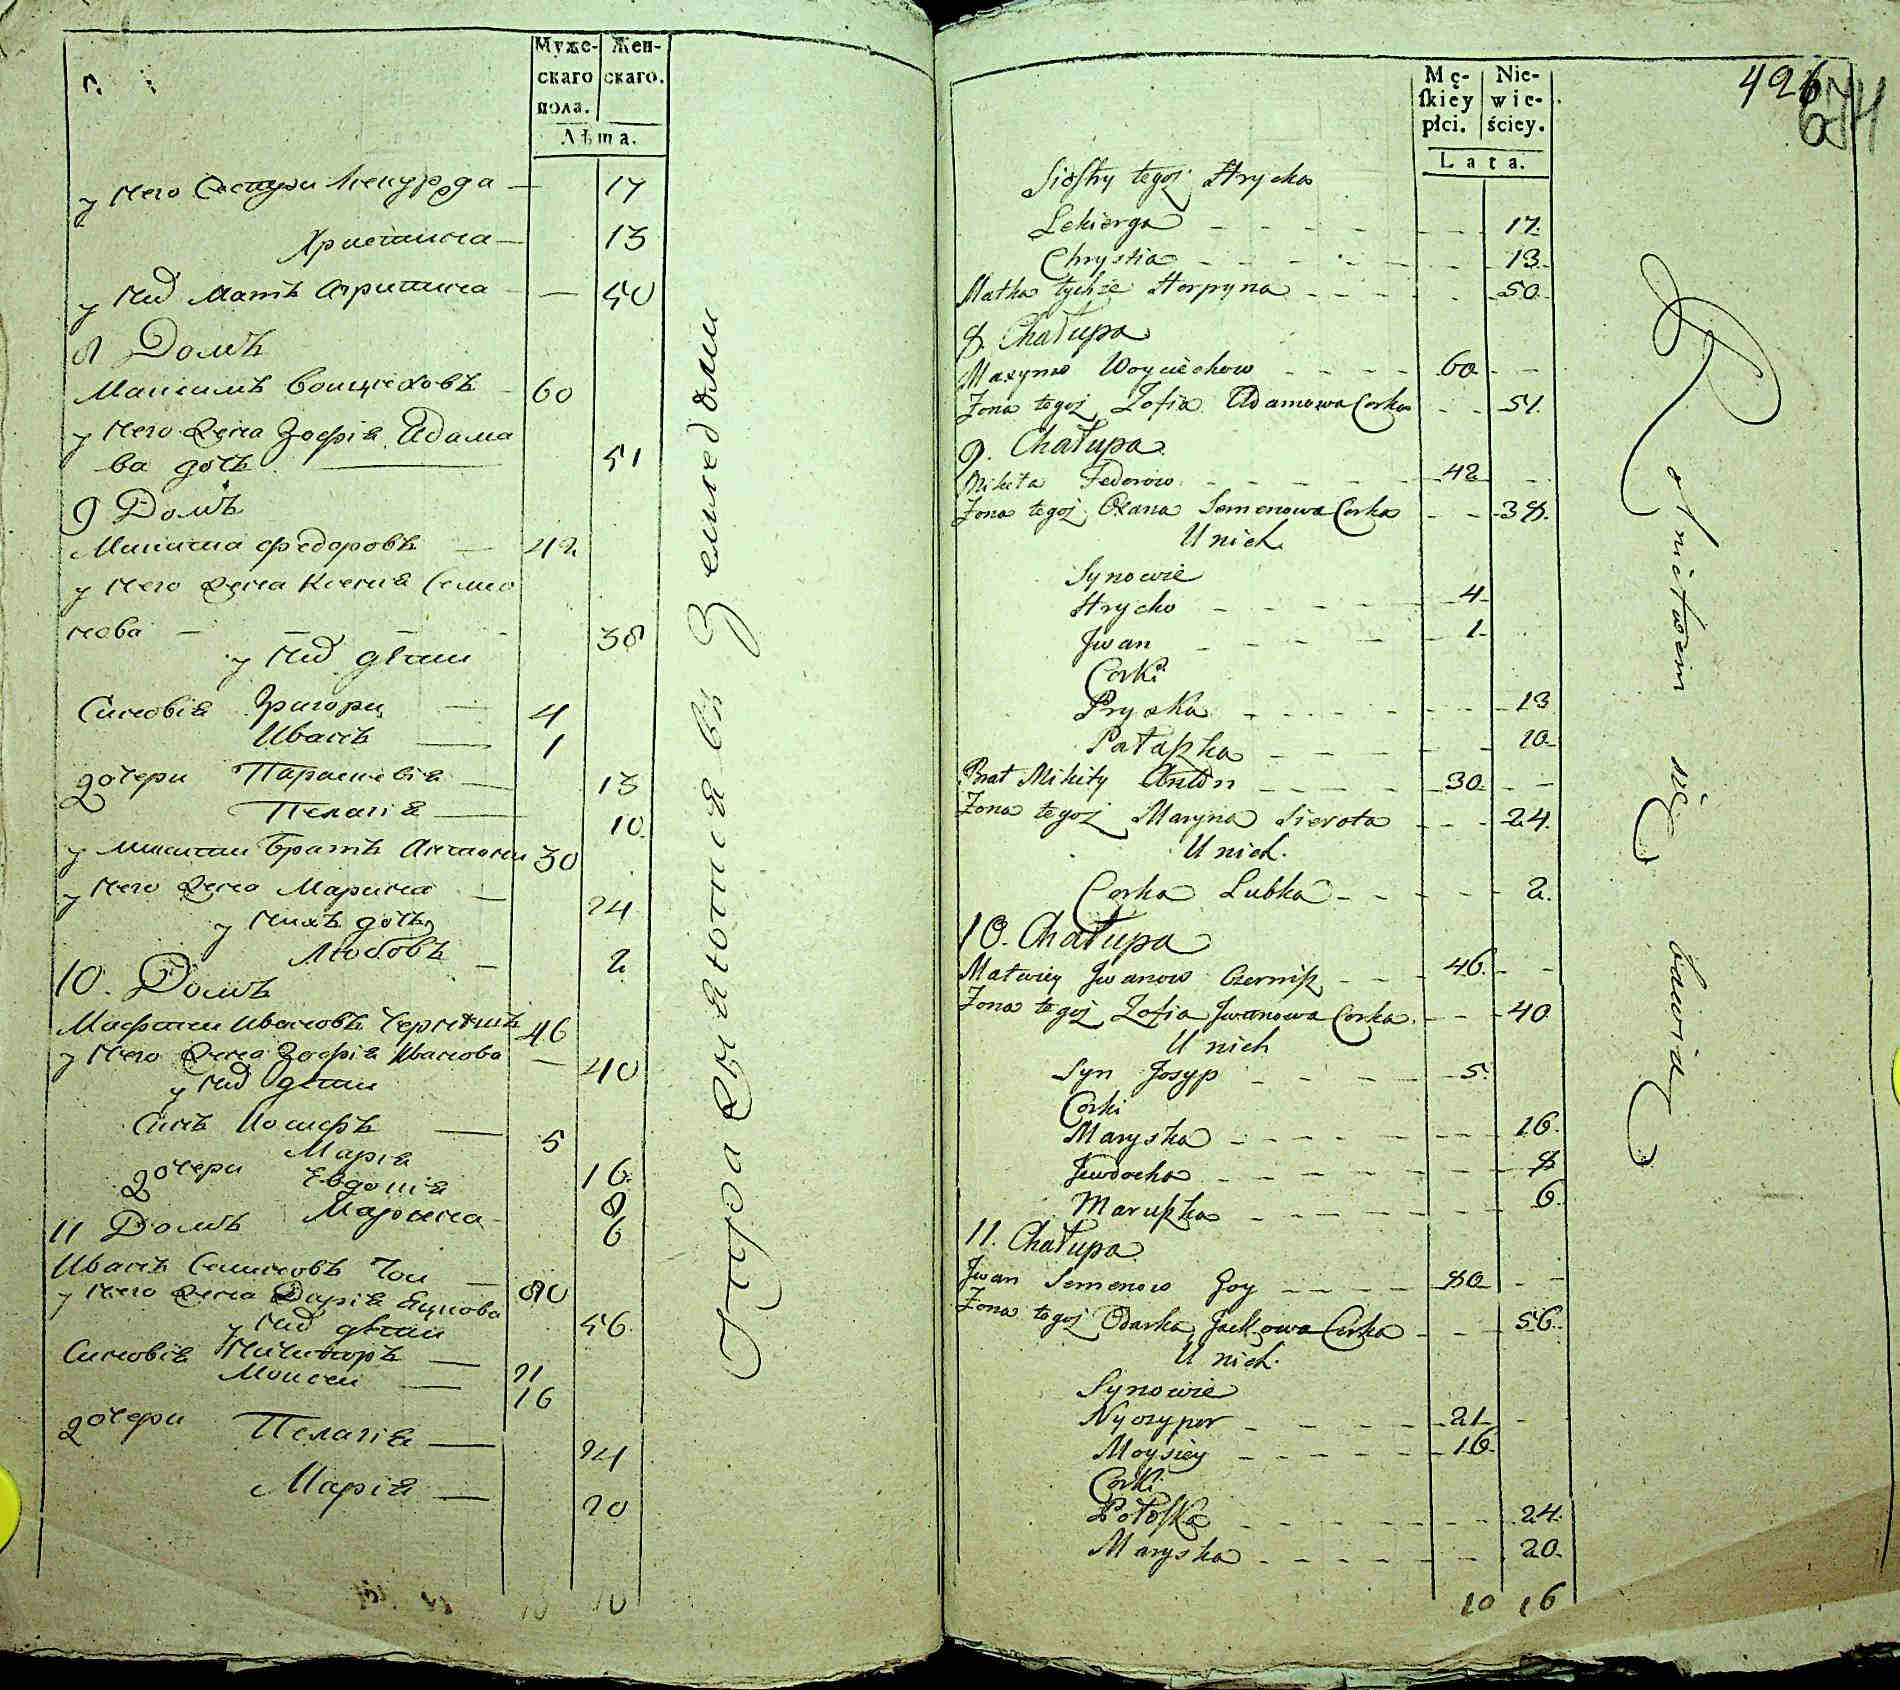 Муже- Жен-
скаго скаго.
пола.
Лѣта.
у него Сестри Лекурда — 17
Христина — 13
у них Мать Агрипина — 50
8 Домъ
Максимъ Войцеховъ — 60
у него Жена Зофія Адамо
ва дочь 51
9 Домъ
Микита Федоровъ — 42
у него Жена Ксенія Семио
нова — 38
у них дѣти
Синовія Григори — 4
Иванъ — 1
дочери Параскевія — 13
Пелагія — 10
у Микити братъ Антони 30
у него Жена Марина — 24
у нихъ дочь
Любовъ — 2
10. Домъ
Матфеи Ивановъ Чернишъ 46
у него Жена Зофія Иванова — 40
у них дѣти
Синъ Иосифъ — 5
дочери Марія 16
Евдокія 8
Марина 6
11 Домъ
Иванъ Семеновъ Гои — 80
у него Жена Дарія Яцкова 56
у них дѣти
Синовія Никифоръ — 21
Моисеи — 16
дочери Пелагія — 24
Марія — 20
10
Упражняются въ Земледелии
Mę- Nie-
ſkiey wie-
płci. ściey.
Lata.
426
674
Siostry tegoż Hrycka
Lekierya 17.
Chrystia 13.
Matka tychże Horpyna 50.
8. Chałupa
Maxym Woyciechow 60
Zona tegoż Zofia Adamowa Corka 51.
9. Chałupa
Mikita Fedorow 42
Zona tegoż Oxana Semenowa Corka 38.
U nich
Synowie
Hrycko 4
Jwan 1
Corki
Pryska 13
Pałaszka 10
Brat Mikity Anton 30
Zona tegoż Maryna Sierota 24.
U nich.
Corka Lubka 2.
10. Chałupa
Matwiey Jwanow Czernisz 46.
Zona tegoż Zofia Jwanowa Corka 40
U nich
Syn Josyp 5.
Corki
Maryska 16.
Jewdocha 8
Maruszka 6.
11. Chałupa
Jwan Semenow Goy 80
Zona tegoż Odarka Jackowa Corka 56.
U nich.
Synowie
Nyczypor 21
Moysiey 16
Corki
Połoſka 24.
Maryska 20.
10 16
Rolnictwem się bawią